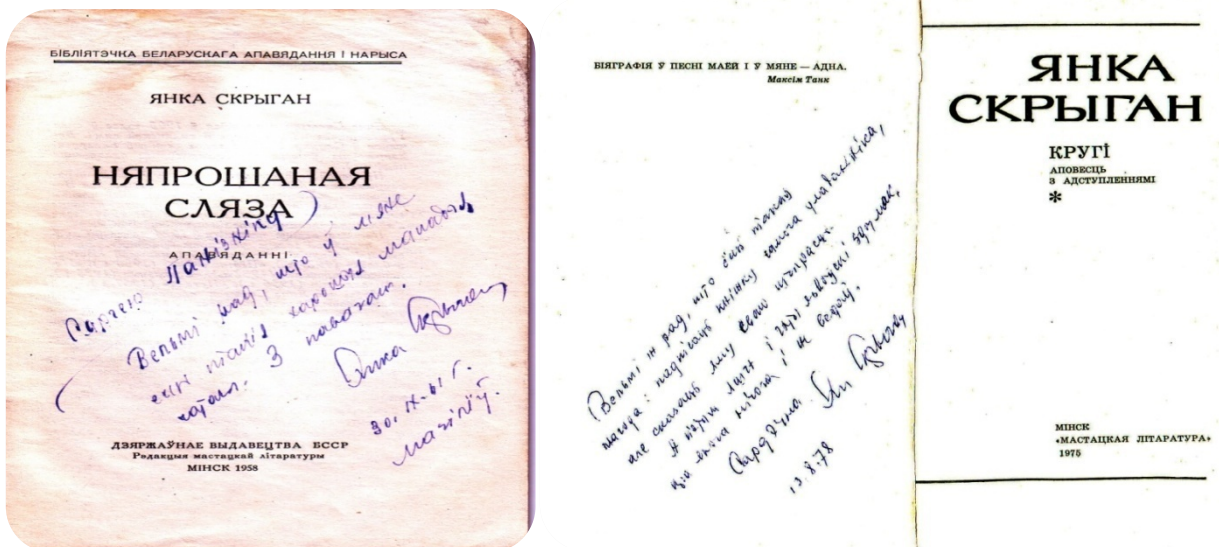 БІБЛІЯТЭЧКА БЕЛАРУСКАГА АПАВЯДАННЯ І НАРЫСА
ЯНКА СКРЫГАН
НЯПРОШАНАЯ
СЛЯЗА
АПАВЯДАННІ
Сяргею
Вельмі рад, што ў мяне
ёсць такія харошыя маладыя
З павагаю.
Янка Скрыган
30.IX-61 г.
Магілёў.
ДЗЯРЖАЎНАЕ ВЫДАВЕЦТВА БССР
Рэдакцыя мастацкай літаратуры
МІНСК 1958
БІЯГРАФІЯ Ў ПЕСНІ МАЕЙ І Ў МЯНЕ — АДНА.
Максім Танк
Вельмі ж рад, што ёсць такая
нагода: падпісаць кніжку самога уладальніка,
але сказаць яму сваю
А
і не ведаў.
Сардэчна Ян Скрыган
13.8.78
ЯНКА
СКРЫГАН
КРУГІ
АПОВЕСЦЬ
З АДСТУПЛЕННЯМІ
*
МІНСК
«МАСТАЦКАЯ ЛІТАРАТУРА»
1975